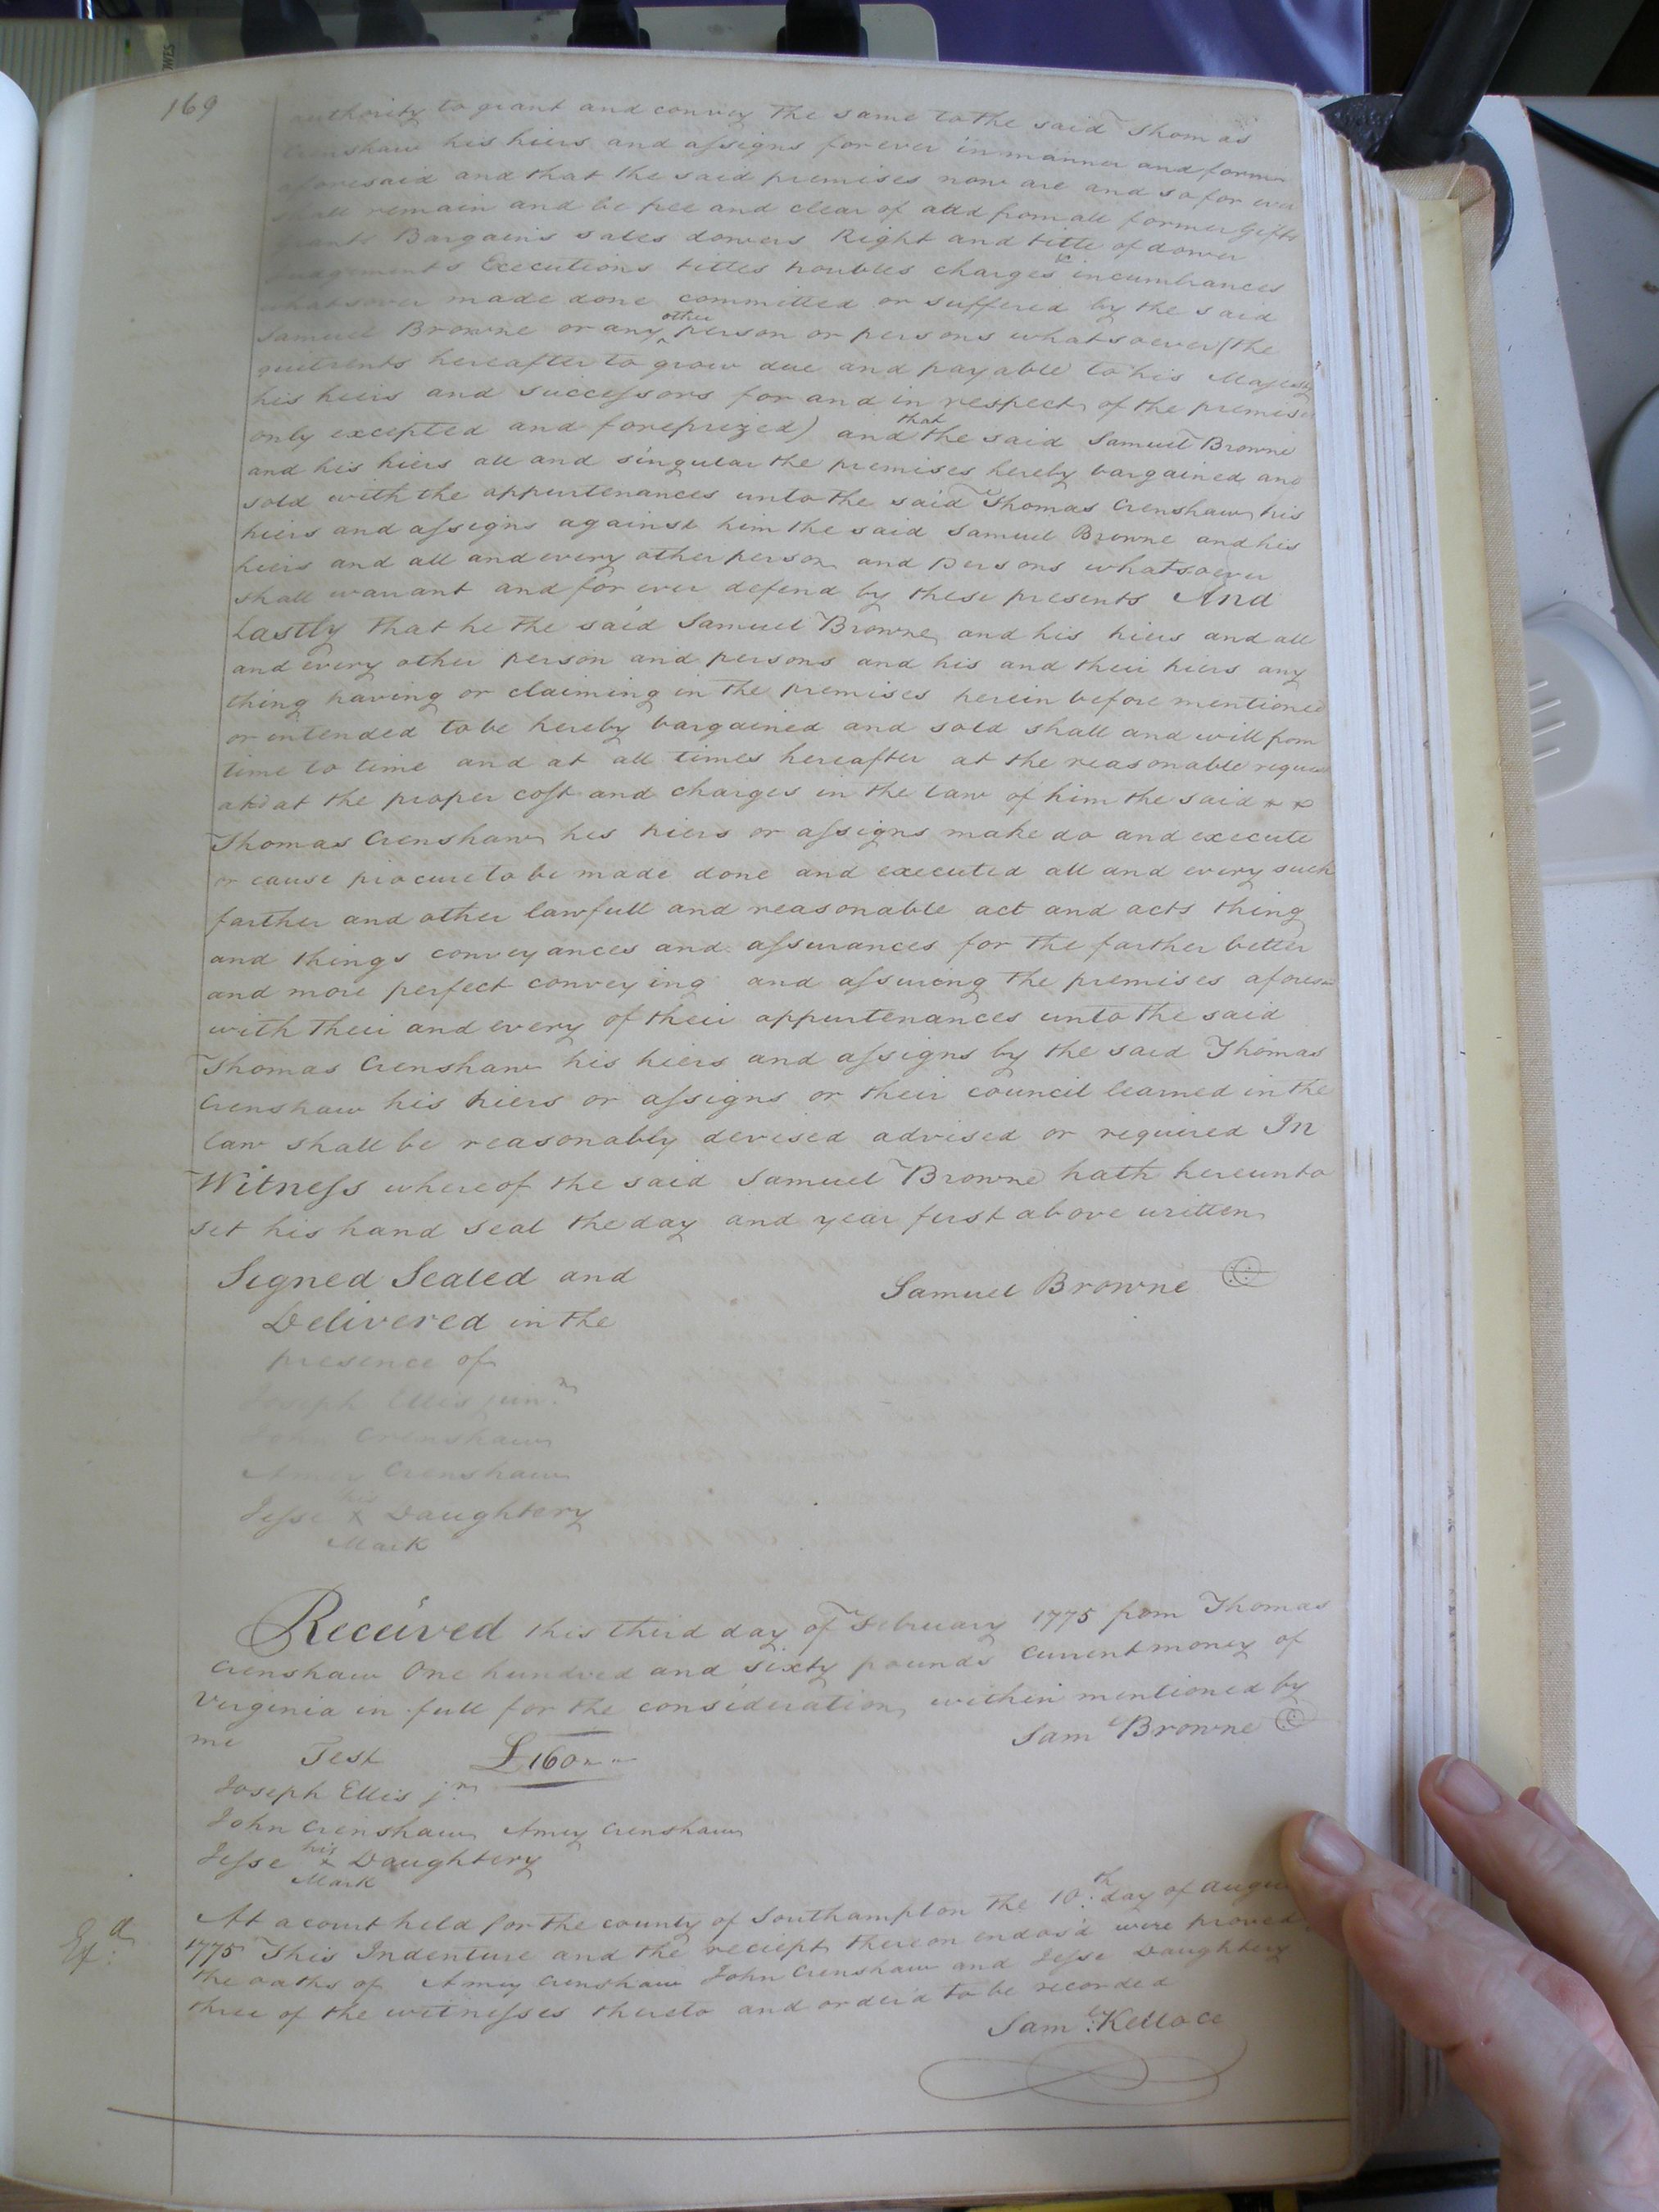 169
authority to grant and convey the same to the said Thomas
Crenshaw his hiers and assigns forever in manner and form
aforesaid and that the said premises now are and so for ever
shall remain and be free and clear of and from all former Gifts
Grants Bargains sales dowers Right and title of dower
Judgements Executions titles troubles charges & incumbrances
whatsover made done committed or suffered by the said
Samuel Browne or any other person or persons whatsoever (the
quitrents hereafter to grow due and payable to his Majesty
his hiers and successors for and in respect of the premises
only excepted and foreprized) and that the said Samuel Browne
and his hiers all and singular the premises hereby bargained and
sold with the appurtenances unto the said Thomas Crenshaw his
hiers and assigns against him the said Samuel Browne and his
hiers and all and every other person and Persons whatsoever
shall warrant and for ever defend by these presents And
Lastly that he the said Samuel Browne and his hiers and all
and every other person and persons and his and their hiers any
thing having or claiming in the premises herein before mentioned
or intended to be hereby bargained and sold shall and will from
time to time and at all times hereafter at the reasonable request
and at the proper cost and charges in the law of him the said
Thomas Crenshaw his hiers or assigns make do and execute
or cause procure to be made done and executed all and every such
farther and other lawfull and reasonable act and acts thing
and things conveyances and assurances for the farther better
and more perfect conveying and assuring the premises aforesaid
with their and every of their appurtenances unto the said
Thomas Crenshaw his hiers and assigns by the said Thomas
Crenshaw his hiers or assigns or their council learned in the
law shall be reasonably devised advised or required In
Witness whereof the said Samuel Browne hath hereunto
set his hand seal the day and year first above written
Signed Sealed and
Samuel Browne
Delivered in the
presence of
Joseph Ellis jun.r
John Crenshaw
Amey Crenshaw
his
Jesse X Daughtery
Mark
Received this third day of February 1775 from Thomas
Crenshaw One hundred and sixty pounds Current money of
Virginia in full for the consideration within mentioned by
me
Saml Browne
Test £160
Joseph Ellis jr.
John Crenshaw Amey Crenshaw
his
Jesse X Daughtery
Mark
At a court held for the county of Southampton the 10.th day of August
1775 This Indenture and the reciept thereon endos'd were proved
the oaths of Amey Crenshaw John Crenshaw and Jesse Daughtery
three of the witnesses thereto and order'd to be recorded
Saml. Kelloce